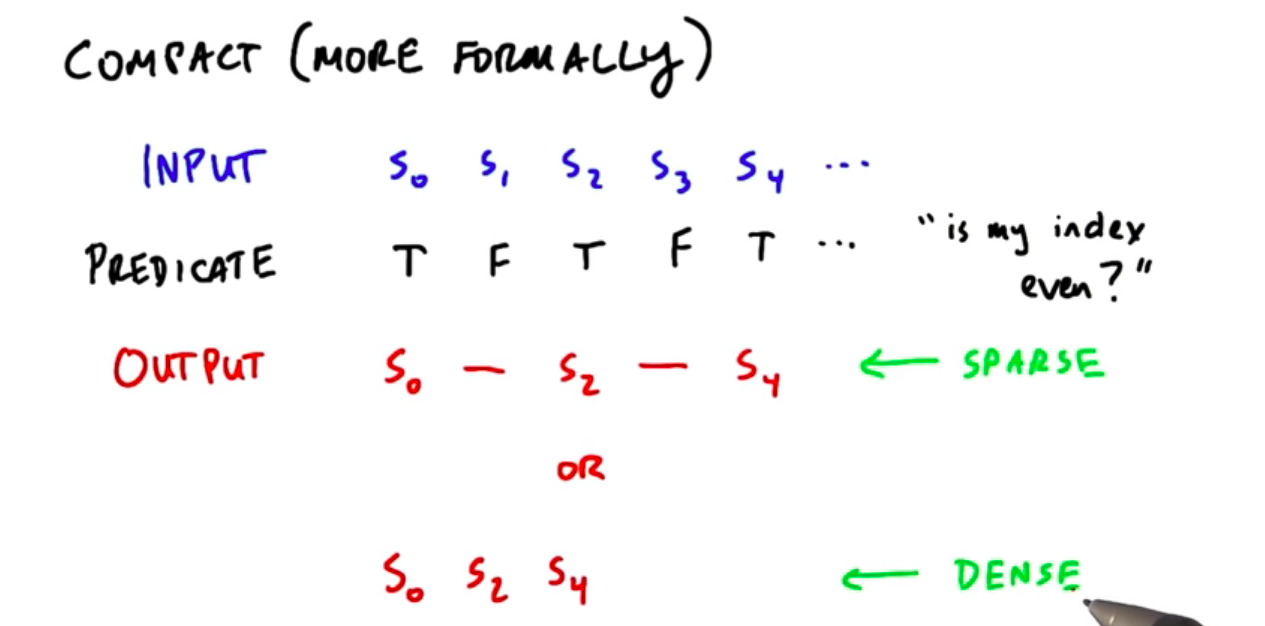 COMPACT (MORE FORMALLY)
INPUT S₀ S₁ S₂ S₃ S₄ ...
PREDICATE T F T F T ... "is my index
even?"
OUTPUT S₀ — S₂ — S₄ ← SPARSE
OR
S₀ S₂ S₄ ← DENSE